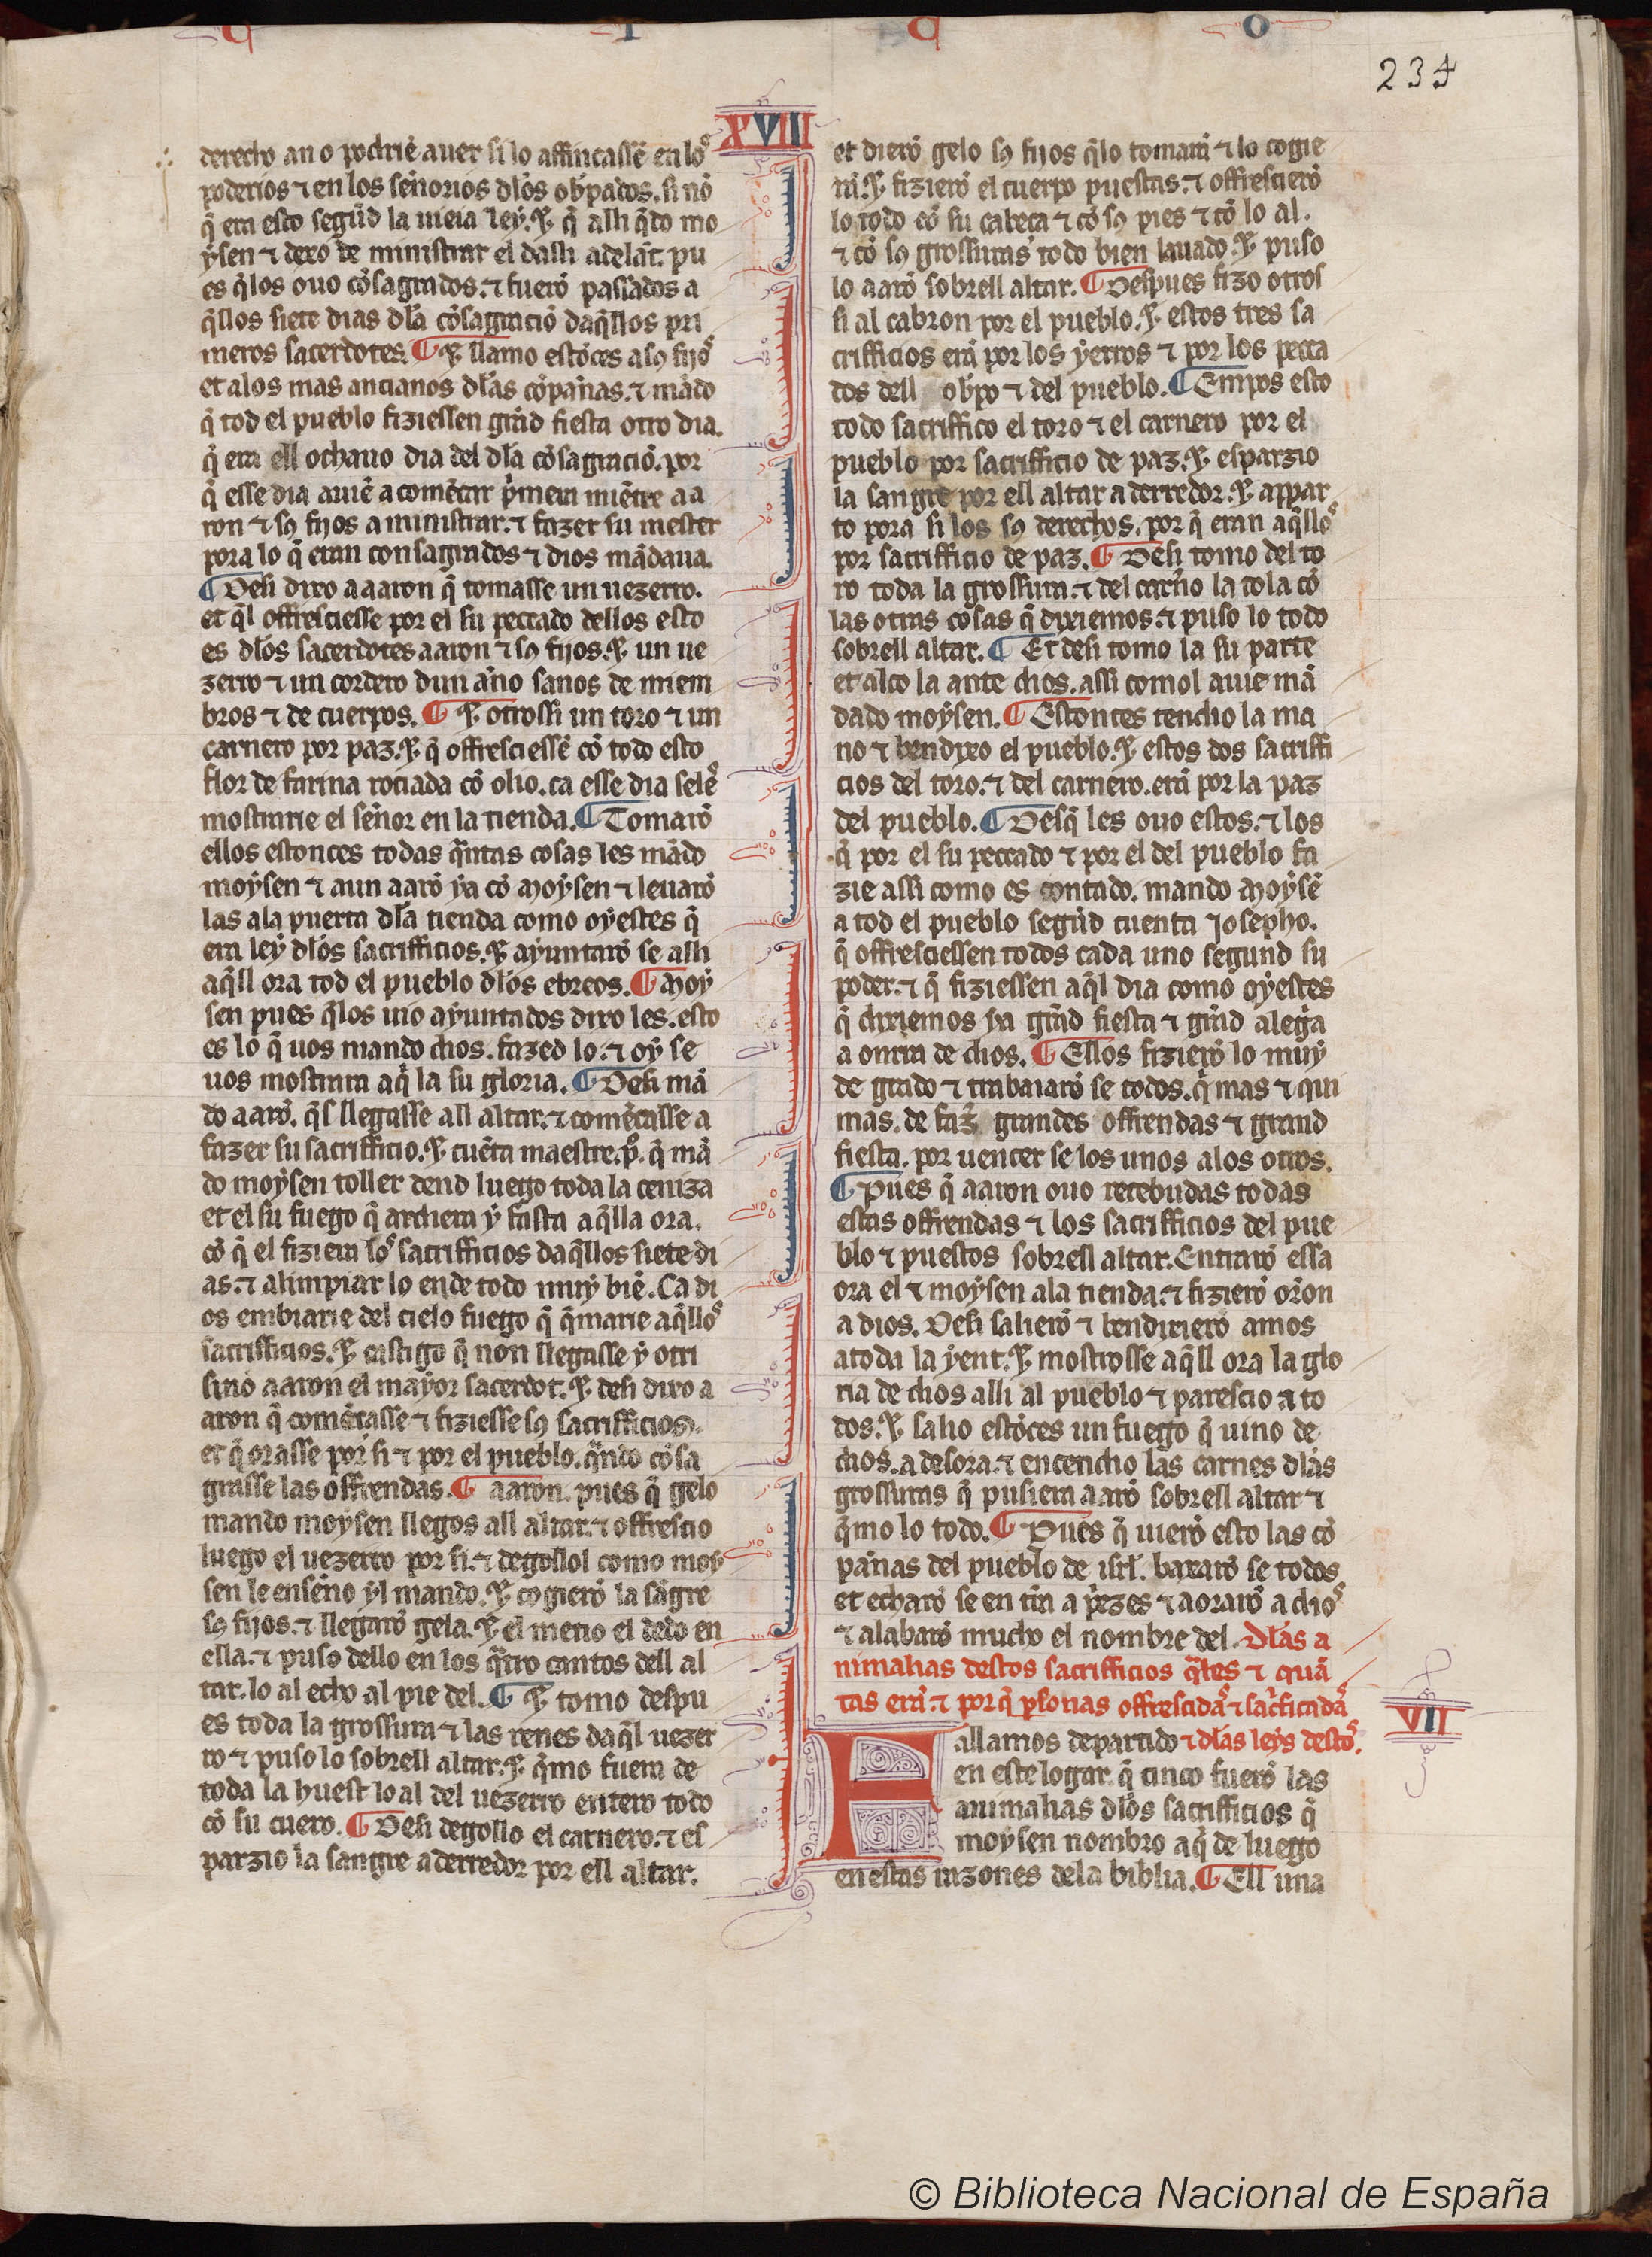 234
XVIII
derecho an o podriẽ auer si lo affincassẽ en los
poderios ⁊ en los señorios dlos obpados. si nõ
q̃ era esto segũd la uieia ley. ⁊ q̃ alli q̃do mo
ysen ⁊ dexo de ministrar el dalli adelãt. pu
es q̃los ouo cõsagrados. ⁊ fuerõ passados a
q̃llos siete dias dla cõsagraciõ daq̃llos pri
meros sacerdotes. ¶ ⁊ llamo estõces a sus fijos
et alos mas ancianos dlas cõpañas. ⁊ mãdo
q̃ tod el pueblo fiziessen grãd fiesta otro dia.
q̃ era ell ochauo dia del dla cõsagraciõ. por
q̃ esse dia auiẽ a comẽçar p̃mera miẽtre aa
ron ⁊ sus fijos a ministrar. ⁊ fazer su mester
pora lo q̃ eran consagrados ⁊ dios mãdaua.
¶ Desi dixo a aaron q̃ tomasse un uezerro.
et q̃l offresciesse por el su peccado dellos esto
es dlos sacerdotes aaron ⁊ sus fijos. ⁊ un ue
zerro ⁊ un cordero dun año sanos de miem
bros ⁊ de cuerpos. ¶ ⁊ otrossi un toro ⁊ un
carnero por paz. ⁊ q̃ offresciessẽ cõ todo esto
flor de farina rociada cõ olio. ca esse dia seles
mostrarie el señor en la tienda. ¶ Tomarõ
ellos estonces todas q̃ntas cosas les mãdo
moysen ⁊ aun aarõ ya cõ moysen ⁊ leuarõ
las ala puerta dla tienda como oyestes q̃
era ley dlos sacrifficios. ⁊ ayuntarõ se alli
aq̃ll ora tod el pueblo dlos ebreos. ¶ Moy
sen pues q̃los uio ayuntados dixo les. esto
es lo q̃ uos mando dios. fazed lo. ⁊ oy se
uos mostrara aq̃ la su gloria. ¶ Desi mã
do aarõ. q̃s llegasse all altar. ⁊ comẽcasse a
fazer su sacrifficio. ⁊ cuẽta maestre .p̃. q̃ mã
do moysen toller dend luego toda la ceniza
et el su fuego q̃ ardiera y fasta aq̃lla ora.
cõ q̃ el fiziera los sacrifficios daq̃llos siete di
as. ⁊ alimpiar lo ende todo muy biẽ. Ca di
os embiarie del cielo fuego q̃ q̃marie aq̃llos
sacrifficios. ⁊ castigo q̃ non llegasse y otri
sino aaron el mayor sacerdot. ⁊ desi dixo a
aron q̃ comẽcasse ⁊ fiziesse sus sacrifficios.
et q̃ orasse por si ⁊ por el pueblo. q̃ndo cõsa
grasse las offrendas. ¶ aaron. pues q̃ gelo
mando moysen llegos all altar. ⁊ offrescio
luego el uezerro por si. ⁊ degollol como moy
sen le enseño yl mando. ⁊ cogierõ la sãgre
sus fijos. ⁊ llegarõ gela. ⁊ el metio el dedo en
ella. ⁊ puso dello en los q̃tro cantos dell al
tar. lo al echo al pie del. ¶ ⁊ tomo despu
es toda la grossura ⁊ las renes daq̃l uezer
ro ⁊ puso lo sobrell altar. ⁊ q̃mo fuera de
toda la huest lo al del uezerro entero todo
cõ su cuero. ¶ Desi degollo el carnero. ⁊ es
parzio la sangre aderredor por ell altar.
et dierõ gelo sus fijos q̃lo tomarã ⁊ lo cogie
rã. ⁊ fizierõ el cuerpo puestas. ⁊ offrescierõ
lo todo cõ su cabeça ⁊ cõ sus pies ⁊ cõ lo al.
⁊ cõ sus grossuras todo bien lauado. ⁊ puso
lo aarõ sobrell altar. ¶ Despues fizo otros
si al cabron por el pueblo. ⁊ estos tres sa
crifficios erã por los yerros ⁊ por los pecca
dos dell obpo ⁊ del pueblo. ¶ Empos esto
todo sacriffico el toro ⁊ el carnero por el
pueblo por sacrifficio de paz. ⁊ esparzio
la sangre por ell altar aderredor. ⁊ appar
to pora si los sus derechos. por q̃ eran aq̃llos
por sacrifficio de paz. ¶ Desi tomo del to
ro toda la grossura. ⁊ del carño la cola cõ
las otras cosas q̃ dixiemos. ⁊ puso lo todo
sobrell altar. ¶ Et desi tomo la su parte
et alço la ante dios. assi comol auie mã
dado moysen. ¶ Estonces tendio la ma
no ⁊ bendixo el pueblo. ⁊ estos dos sacriffi
cios del toro. ⁊ del carnero. erã por la paz
del pueblo. ¶ Desq̃ les ouo estos. ⁊ los
q̃ por el su peccado ⁊ por el del pueblo fa
zie assi como es contado. mando moysẽ
a tod el pueblo segũd cuenta Josepho.
q̃ offresciessen todos cada uno segund su
poder. ⁊ q̃ fiziessen aq̃l dia como oyestes
q̃ dixiemos ya grãd fiesta ⁊ grãd alegͥa
a onrra de dios. ¶ Ellos fizierõ lo muy
de grado ⁊ trabaiarõ se todos. q̃ mas ⁊ qui
mas. de faz̃ grandes offrendas ⁊ grand
fiesta. por uencer se los unos alos otros.
¶ Pues q̃ aaron ouo recebudas todas
estas offrendas ⁊ los sacrifficios del pue
blo ⁊ puestos sobrell altar. Entrarõ essa
ora el ⁊ moysen ala tienda. ⁊ fizierõ or̃on
a dios. Desi salierõ ⁊ bendixierõ amos
atoda la yent. ⁊ mostrosse aq̃ll ora la glo
ria de dios alli al pueblo ⁊ parescio a to
dos. ⁊ salio estõces un fuego q̃ uino de
dios. a desora. ⁊ encendio las carnes dlas
grossuras q̃ pusiera aarõ sobrell altar ⁊
q̃mo lo todo. ¶ Pues q̃ uierõ esto las cõ
pañas del pueblo de isrl. baxarõ se todos
et echarõ se en trã a p̃ezes ⁊ aorarõ a dios
⁊ alabarõ mucho el nombre del. Dlas a
nimalias destos sacrifficios q̃les ⁊ quã
tas erã. ⁊ por q̃ psonas offrescidas ⁊ sacͥficadas
VII
Fallamos departido ⁊ dlas leys destos.
en este logar. q̃ cinco fuerõ las
animalias dlos sacrifficios q̃
moysen nombro aq̃ de luego
en estas razones dela biblia. ¶ Ell una
© Biblioteca Nacional de España